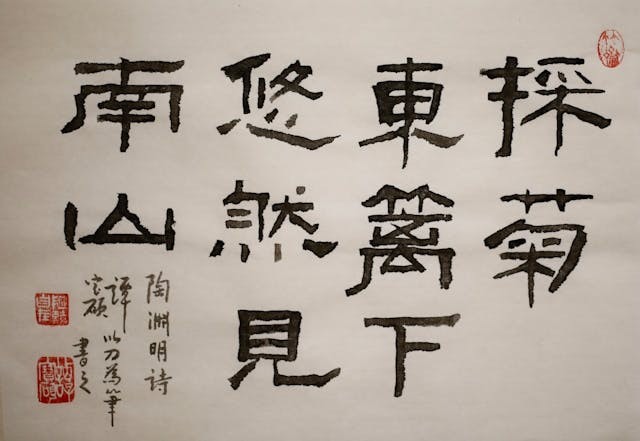 採菊
東籬下
悠然見
南山
陶淵明詩
譚以刀為筆
書之